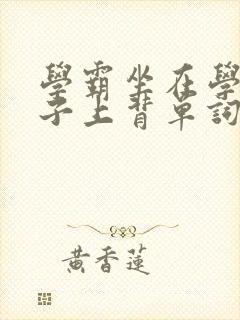 學霸坐在學
子上背單詞
黃香蓮